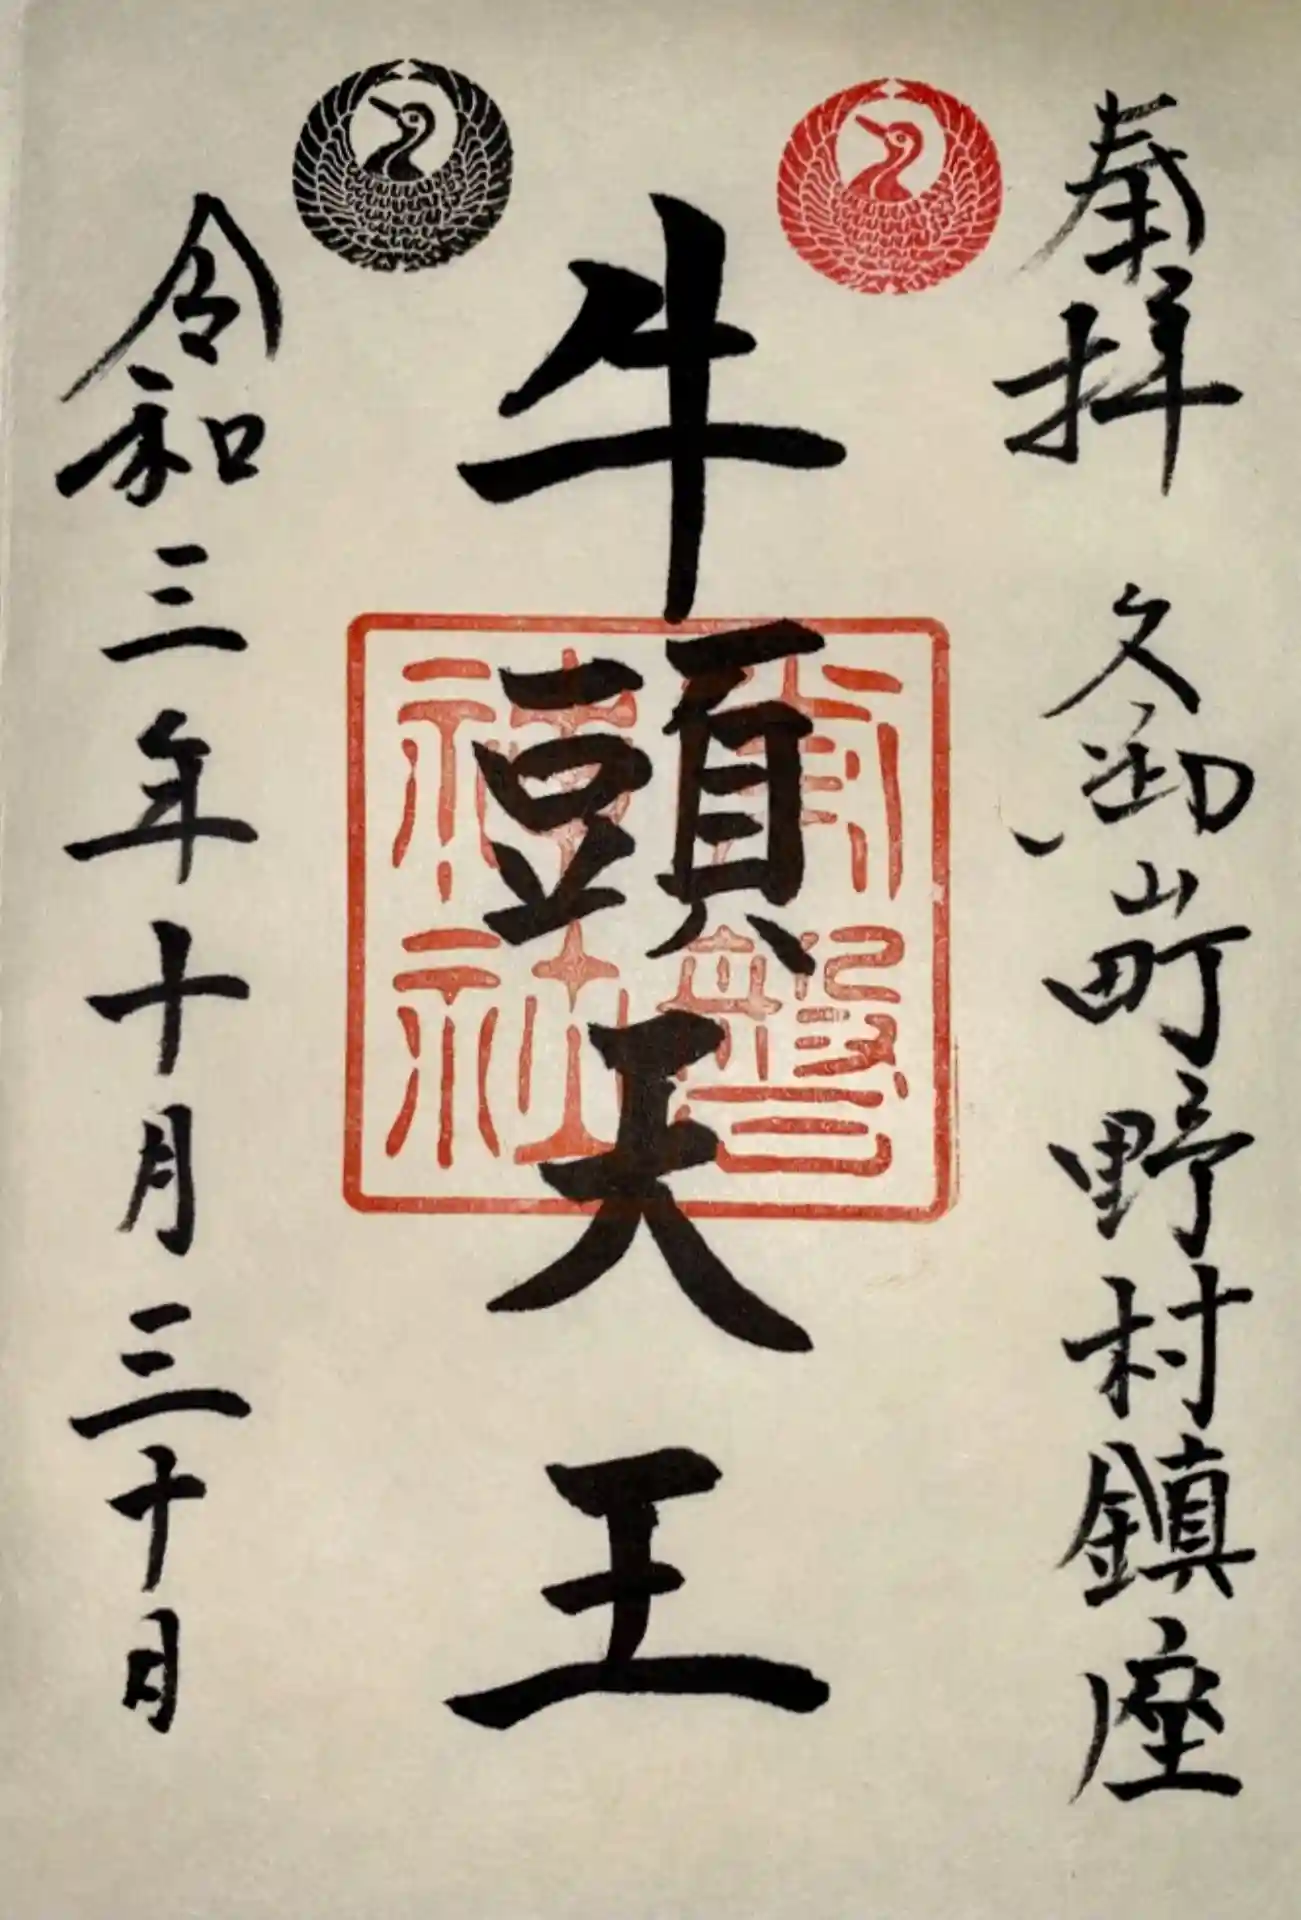 奉拝 久御山町野村鎮座
牛頭天王
常盤神社
令和三年十月三十日